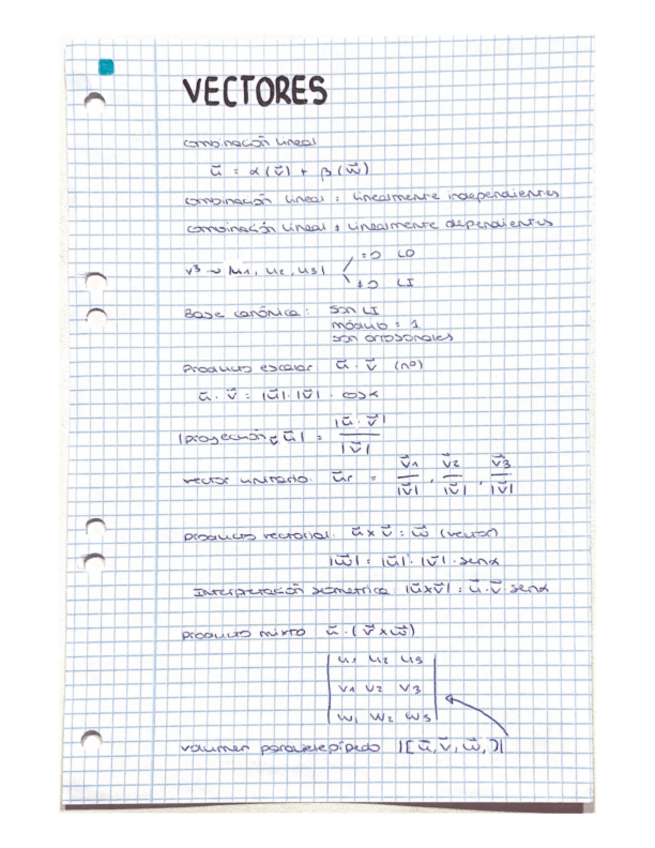 VECTORES
combinación lineal
u⃗ = α(v⃗) + β(w⃗)
combinación lineal = linealmente independientes
combinación lineal ≠ linealmente dependientes
= 0 LD
V³ → |u1, u2, u3|
≠ 0 LI
Base canónica: son LI
módulo = 1
son ortogonales
Producto escalar u⃗ · v⃗ (nº)
u⃗ · v⃗ = |u⃗| · |v⃗| · cosα
|proyección v⃗ u⃗| = |u⃗ · v⃗| / |v⃗|
vector unitario: u⃗r = v⃗1/|v⃗| , v⃗2/|v⃗| , v⃗3/|v⃗|
producto vectorial: u⃗ x v⃗ = w⃗ (vector)
|w⃗| = |u⃗| · |v⃗| · senα
Interpretación geométrica: |u⃗xv⃗| = u⃗ · v⃗ · senα
producto mixto u⃗ · (v⃗ x w⃗)
u1 u2 u3
v1 v2 v3
w1 w2 w3
volumen paralelepípedo |[u⃗, v⃗, w⃗,]|